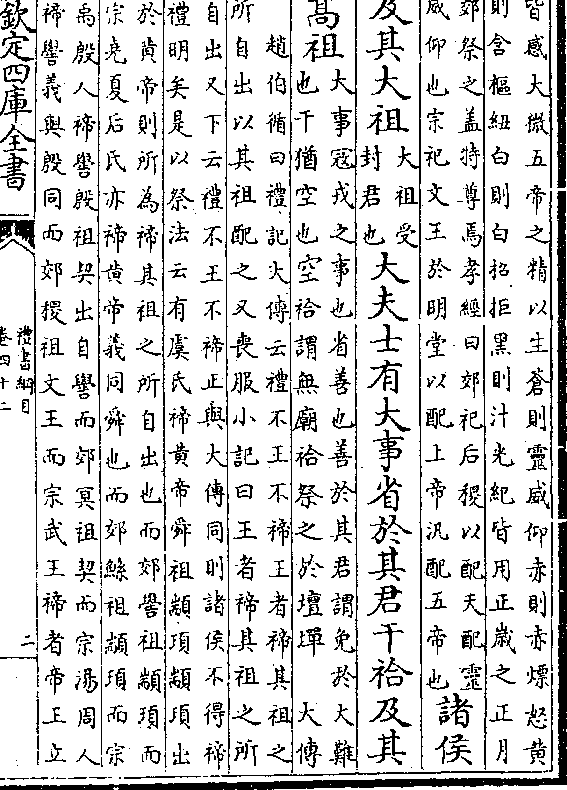 皆感大微五帝之精以生蒼則靈威仰赤則赤熛怒黃
則含樞紐白則白招拒黑則汁光紀皆用正歲之正月
郊祭之盖特尊焉孝經曰郊祀后稷以配天配靈
威仰也宗祀文王於明堂以配上帝汎配五帝也
諸侯
及其大祖
大祖受
封君也
大夫士有大事省於其君干祫及其
高祖
大事寇戎之事也省善也善於其君謂免於大難
也干猶空也空祫謂無廟祫祭之於壇墠 大傳
趙伯循曰禮記大傳云禮不王不禘王者禘其祖之
所自出以其祖配之又喪服小記曰王者禘其祖之所
自出又下云禮不王不禘正與大傳同則諸侯不得禘
禮明矣是以祭法云有虞氏禘黃帝舜祖顓頊顓頊出
於黃帝則所為禘其祖之所自出也而郊嚳祖顓頊而
宗堯夏后氏亦禘黃帝義同舜也而郊鯀祖顓頊而宗
禹殷人禘嚳殷祖契出自嚳而郊冥祖契而宗湯周人
禘嚳義與殷同而郊稷祖文王而宗武王禘者帝王立
欽定四庫全書
禮書綱目
卷四十二
二